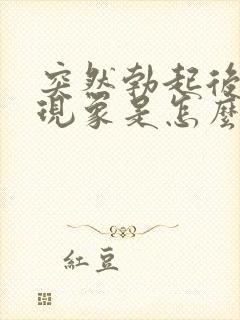 突然勃起後
現象是怎麼
紅豆